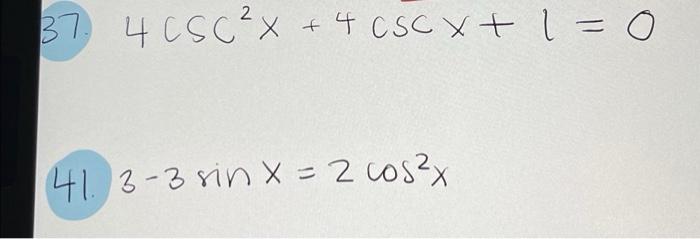 37. 4 csc²x + 4 csc x + 1 = 0
41. 3-3 sin x = 2 cos²x